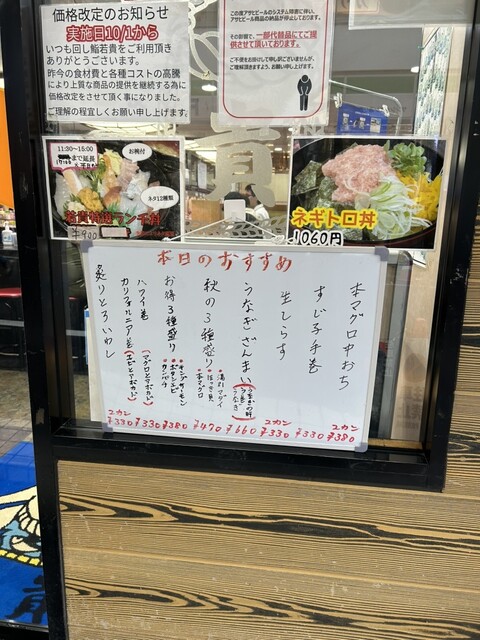 価格改定のお知らせ
実施日10/1から
いつも回し鮨若貴をご利用頂き
ありがとうございます。
昨今の食材費と各種コストの高騰
により上質な商品の提供を継続する為に
価格改定をさせて頂く事になりました。
ご理解の程宜しくお願い申し上げます。
この度アサヒビールのシステム障害に伴い、
アサヒビール商品の納品が停止しております。
その影響で、一部代替品にてご提
供させて頂いております。
ご不便をお掛けして申し訳ございませんが、
ご理解頂きますよう、お願い申し上げます。
貴
11:30〜15:00
まで延長
お椀付
ネタ12種類
若貴特選ランチ丼
¥900
ネギトロ丼
1060円
本日のおすすめ
本マグロ中おち
2カン
¥380
すじ子手巻
¥330
生しらす
2カン
¥330
うなぎざんまい
¥660
秋の3種盛り
・本マグロ
¥470
お得3種盛り
・キングサーモン
・ボタンエビ
・カンパチ
¥380
ハワイ巻
(マグロとアボカド)
¥330
カリフォルニア巻
(エビとアボカド)
炙りとろいわし
2カン
¥330